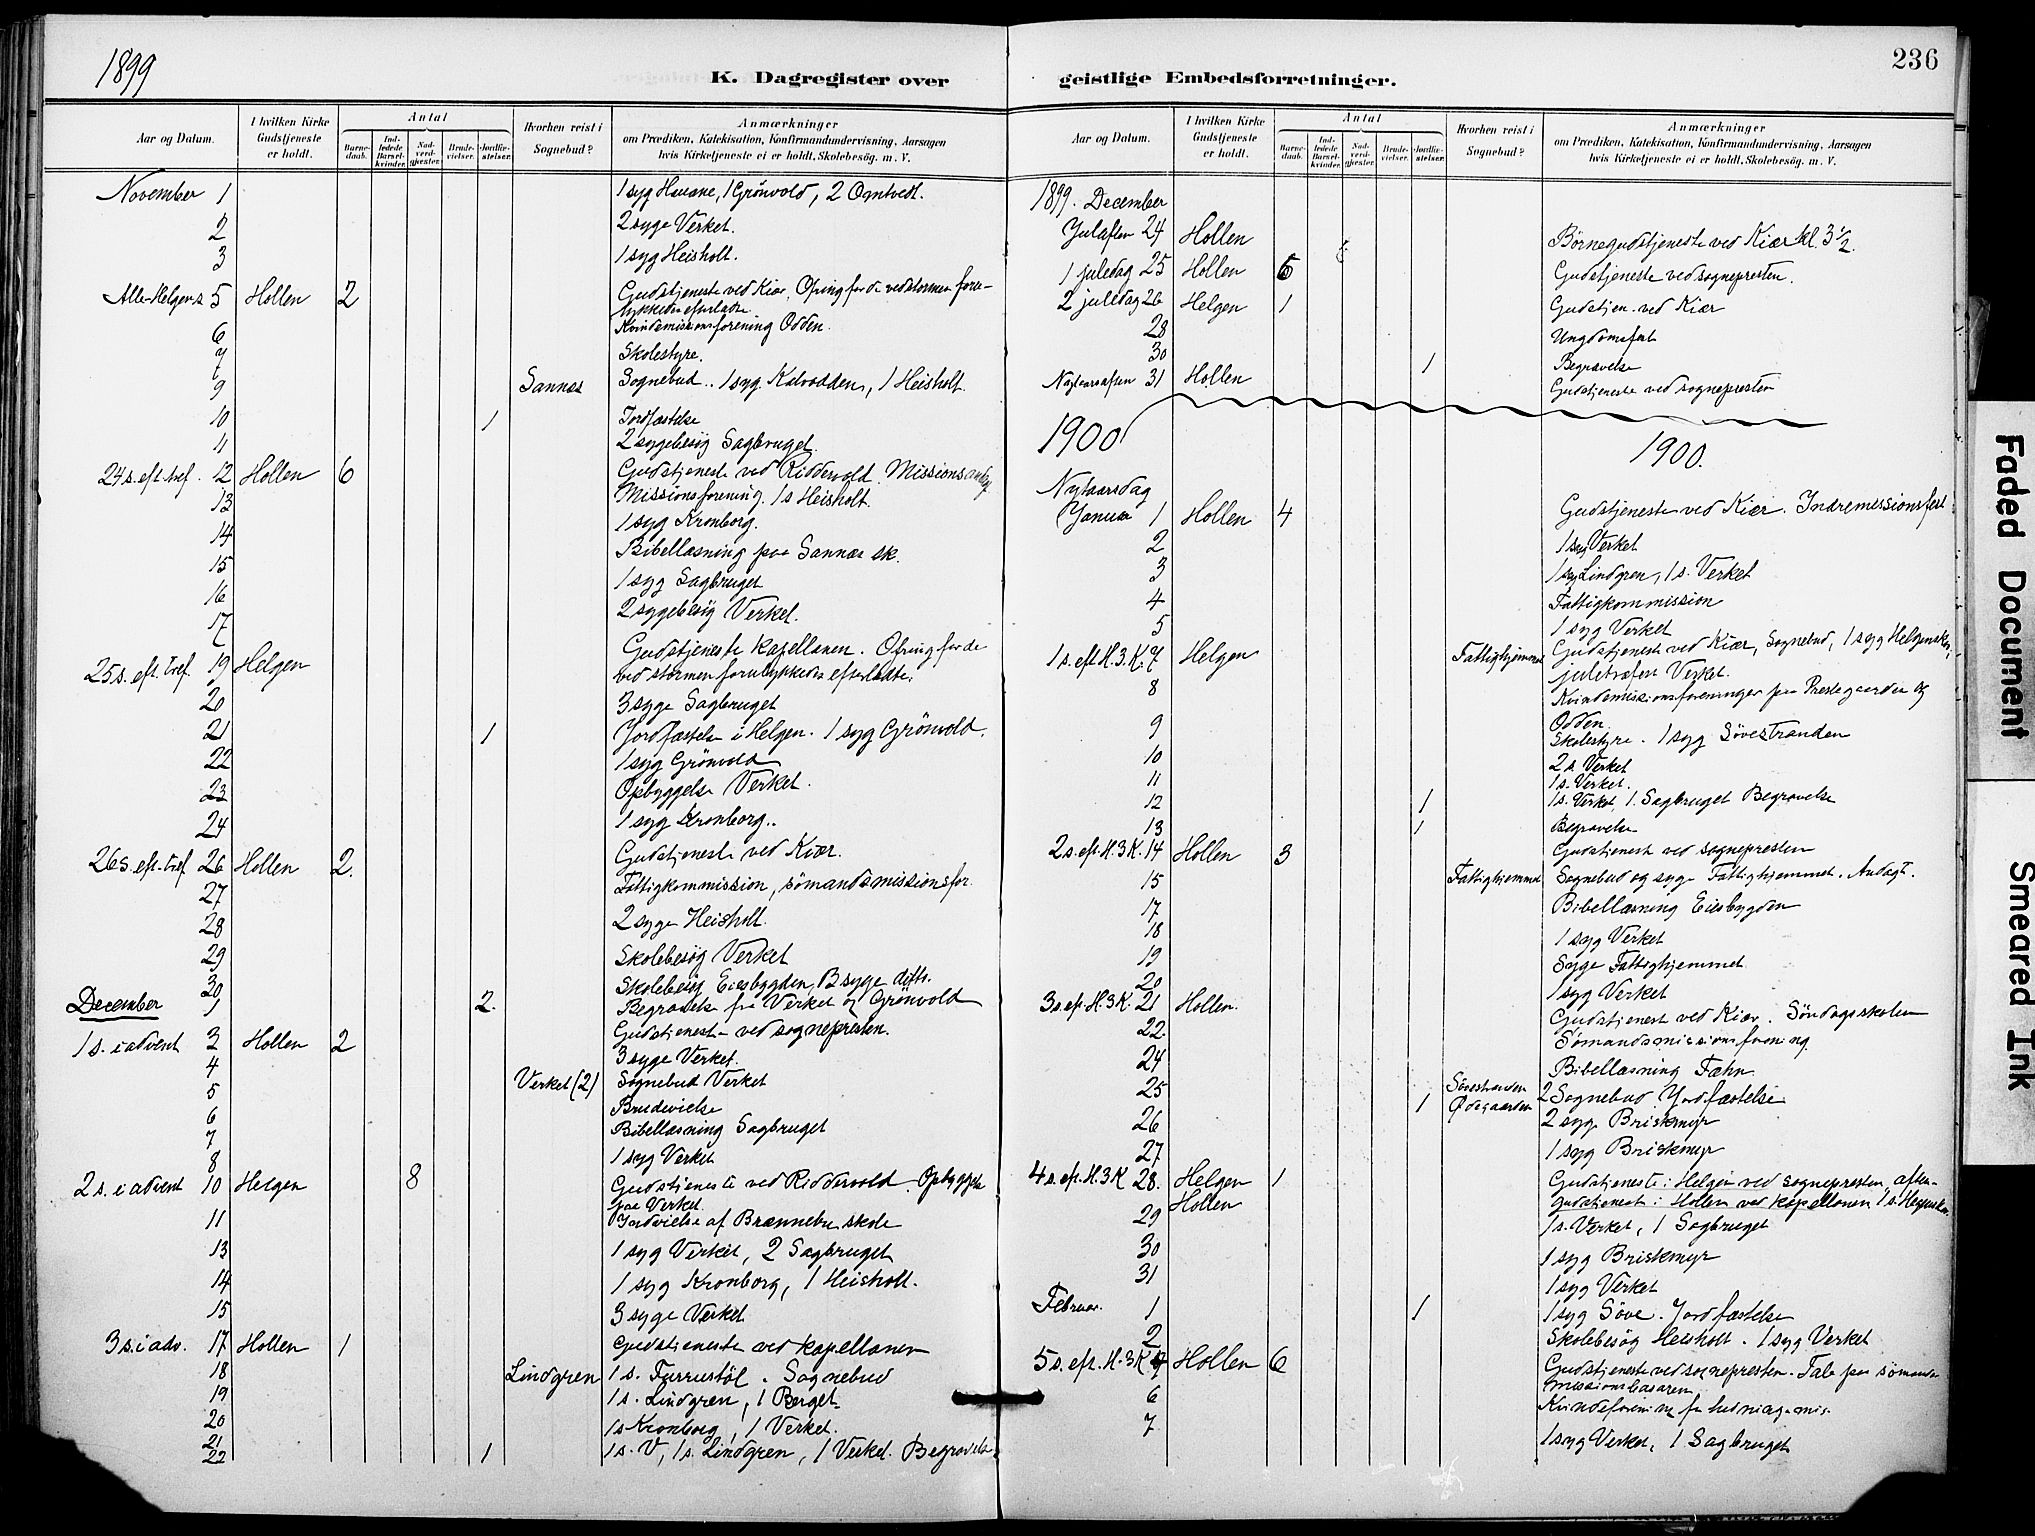 1899
K. Dagregister over
Aar og Datum.
I hvilken Kirke Gudstjeneste er holdt.
Antal
Barne-daab.
Ind-ledede Barsel-kvinder.
Nad-verd-gjester.
Brude-vielser.
Jordfæ-stelser.
Hvorhen reist i Sognebud?
Anmærkninger
om Prædiken, Katekisation, Konfirmandundervisning, Aarsagen
hvis Kirketjeneste ei er holdt, Skolebesög. m. V.
November 1 1 syg Hauane, 1 Grönvold, 2 Omtvedt.
2 2 syge Verket.
3 1 syg Heisholt.
Alle-Helgens 5 Hollen 2 Gudstjeneste ved Kiær. Ofring for de ved stormen forulykkedes efterladte.
6 Kvindemissionsforening Odden.
7 Skolestyre.
9 Sannes Sognebud. 1 syg Kalvodden, 1 Heisholt
10 1 Jordfæstelse
11 2 sygebesög Sagbruget.
24 s. eft. tref. 12 Hollen 6 Gudstjeneste ved Riddervold. Missions
13 Missionsforening. 1 s Heisholt.
14 1 syg Kronborg.
15 Bibellæsning paa Sannes sk.
16 1 syg Sagbruget
17 2 sygebesög Verket.
25 s. eft. tref. 19 Helgen Gudstjeneste kapellanen. Ofring for de
ved stormen forulykkedes efterladte.
20 3 syge Sagbruget
21 1 Jordfæstelse i Helgen. 1 syg Grönvold.
22 1 syg Grönvold
23 Opbyggelse Verket.
24 1 syg Kronborg.
26 s. eft. tref 26 Hollen 2. Gudstjeneste ved Kiær.
27 Fattigkommission, sömandsmissionsfor.
28 2 syge Heisholt.
29 Skolebesög Verket
30 Skolebesög Eiesbygden, 3 syge ditto.
December 1 2. Begravelse fra Verket og Grönvold
1 s. i advent 3 Hollen 2 Gudstjeneste ved sognepresten.
4 3 syge Verket.
5 Verket (2) Sognebud Verket
6 Brudevielse
7 Bibellæsning Sagbruget
8 1 syg Verket
2 s. i advent 10 Helgen 8 Gudstjeneste ved Riddervold. Opbyggelse
paa Verket.
11 Indvielse af Brænnebu skole
13 1 syg Verket, 2 Sagbruget
14 1 syg Kronborg, 1 Heisholt.
15 3 syge Verket
3 s. i adv. 17 Hollen 1 Gudstjeneste ved kapellanen
18 Lindgren 1 s. Furrustöl. Sognebud
19 1 s. Lindgren, 1 Berget
20 1 s Kronborg, 1 Verket.
21
22 1 1 s. V, 1 s. Lindgren, 1 Verket. Begravelse
236
geistlige Embedsforretninger.
Aar og Datum.
I hvilken Kirke Gudstjeneste er holdt.
Antal
Barne-daab.
Ind-ledede Barsel-kvinder.
Nad-verd-gjester.
Brude-vielser.
Jordfæ-stelser.
Hvorhen reist i Sognebud?
Anmærkninger
om Prædiken, Katekisation, Konfirmandundervisning, Aarsagen
hvis Kirketjeneste ei er holdt, Skolebesög. m. V.
1899. December
Julaften 24 Hollen Börnegudstjeneste ved Kiær kl. 3 1/2.
1 juledag 25 Hollen 5 Gudstjeneste ved sognepresten.
2 juledag 26 Helgen 1 Gudstjen. ved Kiær
28 Ungdomsfest
30 1 Begravelse
Nytaarsaften 31 Hollen Gudstjeneste ved sognepresten
1900 1900.
Nytaarsdag
Januar 1 Hollen 4 Gudstjeneste ved Kiær. Indremissionsfest
2 1 syg Verket
3 1 syg Lindgren, 1 s. Verket
4 Fattigkommission
5 1 syg Verket
1 s. eft H. 3. K. 7 Helgen Fattighjemmet Gudstjeneste ved Kiær, Sognebud, 1 syg Helgensk,
juletræfest Verket.
8 Kvindemissionsforeninger paa Prestegaarden og
Odden.
9 Skolestyre. 1 syg Sövestranden
10 2 s. Verket
11 1 s. Verket.
12 1 1 s. Verket, 1 Sagbruget Begravelse
13 1 Begravelse
2 s. eft. H. 3 K. 14 Hollen 3 Gudstjenest ved sognepresten
15 Fattighjemmet Sognebud og syge Fattighjemmet. Andagt.
17 Bibellæsning Eiesbygden
18 1 syg Verket
19 Syge Fattighjemmet
20 1 syg Verket
3 s. ef. H. 3 K. 21 Hollen. Gudstjenest ved Kiær. Söndagsskolen
22. Sömandsmissionsforening.
24 Bibellæsning Fæhn
25 1 Sövestranden Ödegaarden 2 Sognebud. Jordfæstelse
26 2 syge Briskmyr
27 1 syg Briskmyr
4 s. ef. H. 3 K 28. Helgen 1 Gudstjeneste i Helgen ved sognepresten, aften-
Hollen gudstjenest i Hollen ved kapellanen
29 1 s. Verket, 1 Sagbruget
30 1 syg Briskmyr
31 1 syg Verket
Februar. 1 1 1 syg Söve. Jordfæstelse
2 Skolebesög Heisholt. 1 syg Verket
5 s. eft. H. 3 K 4 Hollen 6 Gudstjeneste ved sognepresten. Tale paa sömands
missionsbasaren
6 Kvindeforening for hedningemis.
7 1 syg Verket, 1 Sagbruget
Faded Document
Smeared Ink